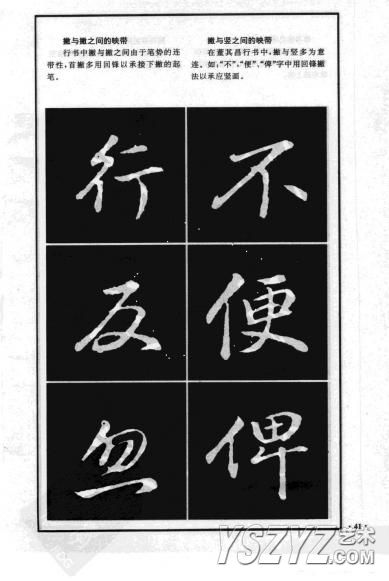 撇与撇之间的映带
行书中撇与撇之间由于笔势的连
带性，首撇多用回锋以承接下撇的起
笔。
撇与竖之间的映带
在董其昌行书中，撇与竖多为意
连。如，“不”、“便”、“俾”字中用回锋撇
法以承应竖画。
行 不
反 便
忽 俾
·41·
YSZYZ艺术
.COM